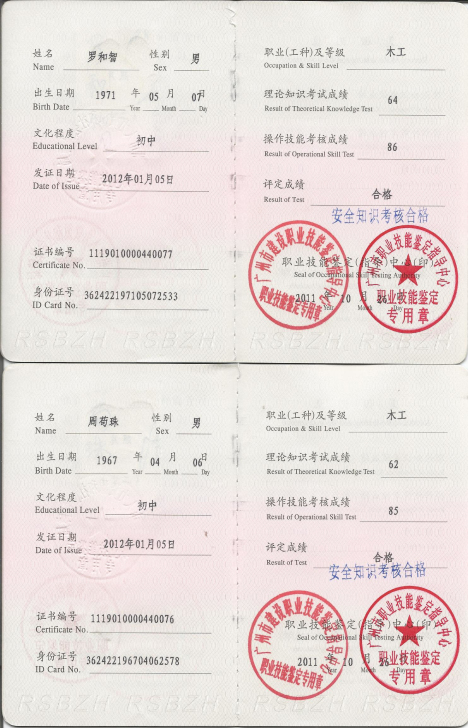 姓名 罗和智 性别 男
Name Sex
出生日期 1971 年 05 月 07日
Birth Date Year Month Day
文化程度 初中
Educational Level
发证日期 2012年01月05日
Date of Issue
证书编号 1119010000440077
Certificate No.
身份证号 362422197105072533
ID Card No.
职业(工种)及等级 木工
Occupation & Skill Level
理论知识考试成绩 64
Result of Theoretical Knowledge Test
操作技能考核成绩 86
Result of Operational Skill Test
评定成绩 合格
Result of Test
安全知识考核合格
职业技能鉴定(指导)中心(印)
Seal of Occupational Skill Testing Authority
2011 年 10 月 26 日
Year Month Day
广州市建设职业技能鉴定指导中心
职业技能鉴定专用章
广州市职业技能鉴定指导中心
职业技能鉴定
专用章
RSBZH RSBZH
姓名 周荀珠 性别 男
Name Sex
出生日期 1967 年 04 月 06日
Birth Date Year Month Day
文化程度 初中
Educational Level
发证日期 2012年01月05日
Date of Issue
证书编号 1119010000440076
Certificate No.
身份证号 362422196704062578
ID Card No.
职业(工种)及等级 木工
Occupation & Skill Level
理论知识考试成绩 62
Result of Theoretical Knowledge Test
操作技能考核成绩 85
Result of Operational Skill Test
评定成绩 合格
Result of Test
安全知识考核合格
职业技能鉴定(指导)中心(印)
Seal of Occupational Skill Testing Authority
2011 年 10 月 26
Year Month
广州市建设职业技能鉴定指导中心
职业技能鉴定专用章
广州市职业技能鉴定指导中心
职业技能鉴定
专用章
RSBZH RSBZH